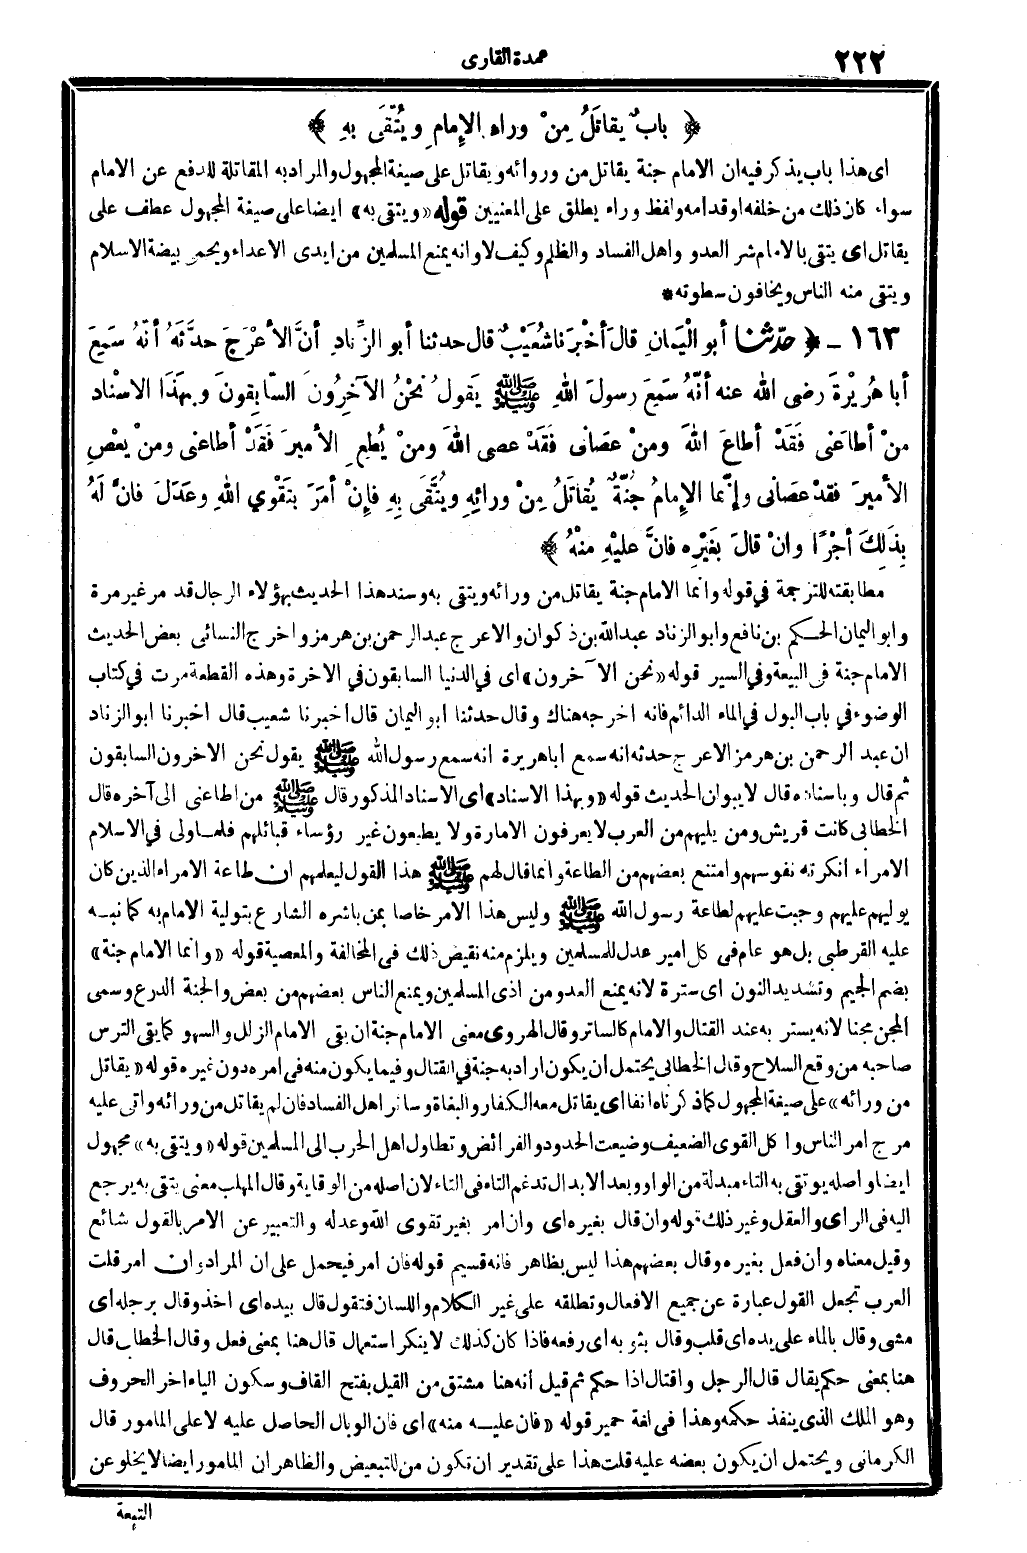 ٢٢٢
عمدة القارى
﴿ بابٌ يقاتَلُ مِنْ وراءِ الإِمامِ ويُتَّقَى بهِ ﴾
اى هذا باب يذكر فيه ان الامام جنة يقاتل من وروائه ويقاتل على صيغة المجهول والمراد به المقاتلة للدفع عن الامام
سواء كان ذلك من خلفه او قدامه ولفظ وراء يطلق على المعنيين قوله «ويتقى به» ايضا على صيغة المجهول عطف على
يقاتل اى يتقى بالامام شر العدو واهل الفساد والظلم وكيف لا وانه يمنع المسلمين من ايدى الاعداء ويحمى بيضة الاسلام
ويتقى منه الناس ويخافون سطوته *
١٦٣ ـ ﴿ حدّثنا أبو الْيَمانِ قالَ أخْبَرَنا شُعَيْبٌ قال حدثنا أبو الزِّنادِ أنَّ الأعْرَجَ حدَّثَهُ أنَّهُ سَمِعَ
أبا هُرَيْرَةَ رضى الله عنه أنَّهُ سَمِعَ رسولَ اللهِ ﷺ يَقولُ نَحْنُ الآخِرُونَ السَّابِقونَ وبِهَذَا الاسْنادِ
منْ أطاعَنى فَقَدْ أطاعَ اللهَ ومنْ عصَانى فَقَدْ عصى اللهَ ومنْ يُطعِ الأميرَ فَقَدْ أطاعنى ومنْ يعْصِ
الأميرَ فقدْ عصَانى وإنَّما الإِمامُ جُنَّةٌ يُقاتَلُ مِنْ ورائِهِ ويُتَّقَى بِهِ فإِنْ أمَرَ بتَقْوي اللهِ وعَدَلَ فانَّ لَهُ
بِذَلِكَ أجْرًا وانْ قالَ بغَيْرِهِ فانَّ عليْهِ مِنْهُ ﴾
مطابقته للترجمة في قوله وانما الامام جنة يقاتل من ورائه ويتقى به وسند هذا الحديث بهؤلاء الرجال قد مر غير مرة
وابو اليمان الحكم بن نافع وابو الزناد عبد الله بن ذكوان والاعرج عبد الرحمن بن هرمز واخرج النسائى بعض الحديث
الامام جنة فى البيعة وفي السير قوله «نحن الآخرون» اى في الدنيا السابقون في الاخرة وهذه القطعة مرت في كتاب
الوضوء في باب البول في الماء الدائم فانه اخرجه هناك وقال حدثنا ابو اليمان قال اخبرنا شعيب قال اخبرنا ابو الزناد
ان عبد الرحمن بن هرمز الاعرج حدثه انه سمع ابا هريرة انه سمع رسول الله ﷺ يقول نحن الاخرون السابقون
ثم قال وباسناده قال لا يبولن الحديث قوله «وبهذا الاسناد» اى الاسناد المذكور قال ﷺ من اطاعنى الى آخره قال
الخطابى كانت قريش ومن يليهم من العرب لا يعرفون الامارة ولا يطيعون غير رؤساء قبائلهم فلما ولى في الاسلام
الامراء انكرته نفوسهم وامتنع بعضهم من الطاعة وانما قال لهم ﷺ هذا القول ليعلمهم ان طاعة الامراء الذين كان
يوليهم عليهم وجبت عليهم لطاعة رسول الله ﷺ وليس هذا الامر خاصا بمن باشره الشارع بتولية الامام به كما نبه
عليه القرطبى بل هو عام فى كل امير عدل للمسلمين ويلزم منه نقيض ذلك فى المخالفة والمعصية قوله «وانما الامام جنة»
بضم الجيم وتشديد النون اى سترة لانه يمنع العدو من اذى المسلمين ويمنع الناس بعضهم من بعض والجنة الدرع وسمى
المجن مجنا لانه يستر به عند القتال والامام كالساتر وقال الهروى معنى الامام جنة ان يقى الامام الزلل والسهو كما يقى الترس
صاحبه من وقع السلاح وقال الخطابى يحتمل ان يكون اراد به جنة في القتال وفيما يكون منه فى امره دون غيره قوله «يقاتل
من ورائه» على صيغة المجهول كما ذكرناه انفا اى يقاتل معه الكفار والبغاة وسائر اهل الفساد فان لم يقاتل من ورائه واتى عليه
مرج امر الناس واكل القوى الضعيف وضيعت الحدود والفرائض وتطاول اهل الحرب الى المسلمين قوله «ويتقى به» مجهول
ايضا واصله يوتقى به التاء مبدلة من الواو وبعد الابدال تدغم التاء فى التاء لان اصله من الوقاية وقال المهلب معنى يتقى به يرجع
اليه فى الراى والعقل وغير ذلك قوله وان قال بغيره اى وان امر بغير تقوى الله وعدله والتعبير عن الامر بالقول شائع
وقيل معناه وان فعل بغيره وقال بعضهم هذا ليس بظاهر فانه قسيم قوله فان امر فيحمل على ان المراد وان امر قلت
العرب تجعل القول عبارة عن جميع الافعال وتطلقه على غير الكلام واللسان فتقول قال بيده اى اخذ وقال برجله اى
مشى وقال بالماء على يده اى قلب وقال بثوبه اى رفعه فاذا كان كذلك لا ينكر استعمال قال هنا بمعنى فعل وقال الخطابى قال
هنا بمعنى حكم يقال قال الرجل واقتال اذا حكم ثم قيل انه هنا مشتق من القيل بفتح القاف وسكون الياء اخر الحروف
وهو الملك الذى ينفذ حكمه وهذا فى لغة حمير قوله «فان عليه منه» اى فان الوبال الحاصل عليه لا على المامور قال
الكرمانى ويحتمل ان يكون بعضه عليه قلت هذا على تقدير ان تكون من للتبعيض والظاهر ان المامور ايضا لا يخلو عن
التبعة